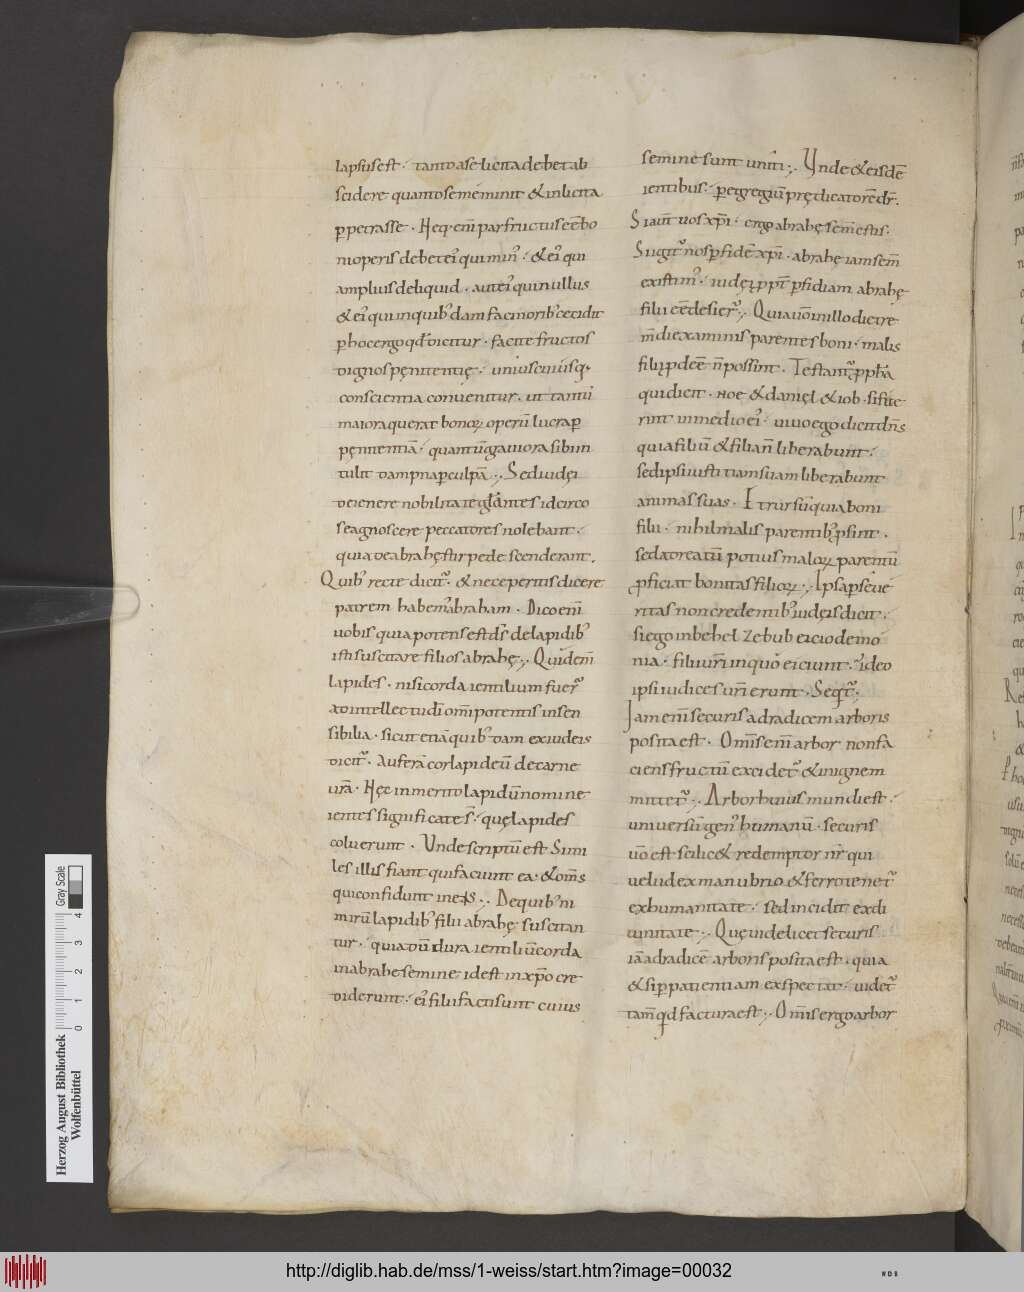 lapsus est · tanto a se licita debet ab
scidere quanto se meminit & inlicita
ppetrasse · Neq· eni̅ par fructus ee̅ bo
ni operis debet ei qui min᾽ · & ei qui
amplius deliquid · aut ei qui in nullus
& ei qui in quib᾽dam facinorib᾽ cecidit
p hoc ergo qd̅ dicitur · facite fructos
dignos pęnitentię · uniuscuiusq·
conscientia conuenitur · ut tanti
maiora querat bonoꝝ operu̅ lucra p
pęnitentia̅ · quantu̅ grauiora sibi in
tulit dampna p culpa̅ · Sed iudęi
de ienere nobilitate gl̅antes idcirco
se agnoscere peccatores nolebant ·
quia de abrahę stirpe descenderant ·
Quib᾽ recte dicit᾽ · & ne ceperitis dicere
patrem habem᾽ abraham · Dico eni̅
uobis quia potens est ds̅ de lapidib᾽
istis uscitare filios abrahę · Qui dem̅
lapides · nisi corda ientilium fuer᾽
ad intellectu di̅ om̅ipotentis insen
sibilia · sicut etia̅ quib᾽dam ex iudeis
dicit᾽ · Aufera̅ cor lapideu̅ de carne
ura̅ · Nec inmerito lapidu̅ nomine
ientes significate s̅ · quę lapides
coluerunt · Unde scriptu̅ est Simi
les illis fiant qui faciunt ea · & om̅s
qui confidunt in eis · De quib᾽ ni
miru̅ lapidib᾽ filii abrahę suscitan
tur · quia du̅ dura ientiliu̅ corda
in abrahe semine id est in xp̅o cre
diderunt · ei filii facti sunt cuius
semine sunt uniti · Unde & eisde̅
ientibus · p egregiu̅ prędicatore̅ dr̅ ·
Si aut̅ uos xp̅i · ergo abrahę sem̅ estis ·
Si igit᾽ nos p fide̅ xp̅i · abrahę iam sem̅
existim᾽ · iudęi ppt̅ pfidiam abrahę
filii ee̅ desier᾽ · Quia uo̅ in illo die tre
m̅di examinis parentes boni · malis
filiis pdee̅ n̅ possint · Testant᾽ ppha̅
qui dicit · Noe & danięl & iob · si fue
rint in medio ei᾽ · uiuo ego dicit dn̅s
quia filiu̅ & filian̅ liberabunt ·
sed ipsi iustitiam suam liberabunt
animas suas · Itrursu̅ quia boni
filii · nihil malis parentib᾽ psint ·
sed ad reatu̅ potius maloꝝ parentu̅
pficiat bonitas filioꝝ · Ipsa p se ue
ritas non credentib᾽ iudęis dicit ·
si ego in behel zebub eicio demo
nia · filii ur̅i in quo eiciunt · ideo
ipsi iudices ur̅i erunt · Seqt̅᾽ ·
Jam eni̅ securis ad radicem arboris
posita est · Omis̅ eni̅ arbor non fa
ciens fructu̅ excidet᾽ & in ignem
mittet᾽ · Arbor huius mundi est ·
uniuersu̅ gen᾽ humanu̅ · securis
uo̅ est scilic& redemptor nr̅ qui
uelud ex manubrio & ferro tenet᾽
ex humanitate · sed incidit ex di
uinitate · Quę uidelicet securis
ia̅ ad radice̅ arboris posita est · quia
& si p patientiam exspectat · uidet᾽
tam̅ qd factura est · Omis̅ ergo arbor
Herzog August Bibliothek
Wolfenbüttel
0 1 2 3 4
Gray Scale
http://diglib.hab.de/mss/1-weiss/start.htm?image=00032